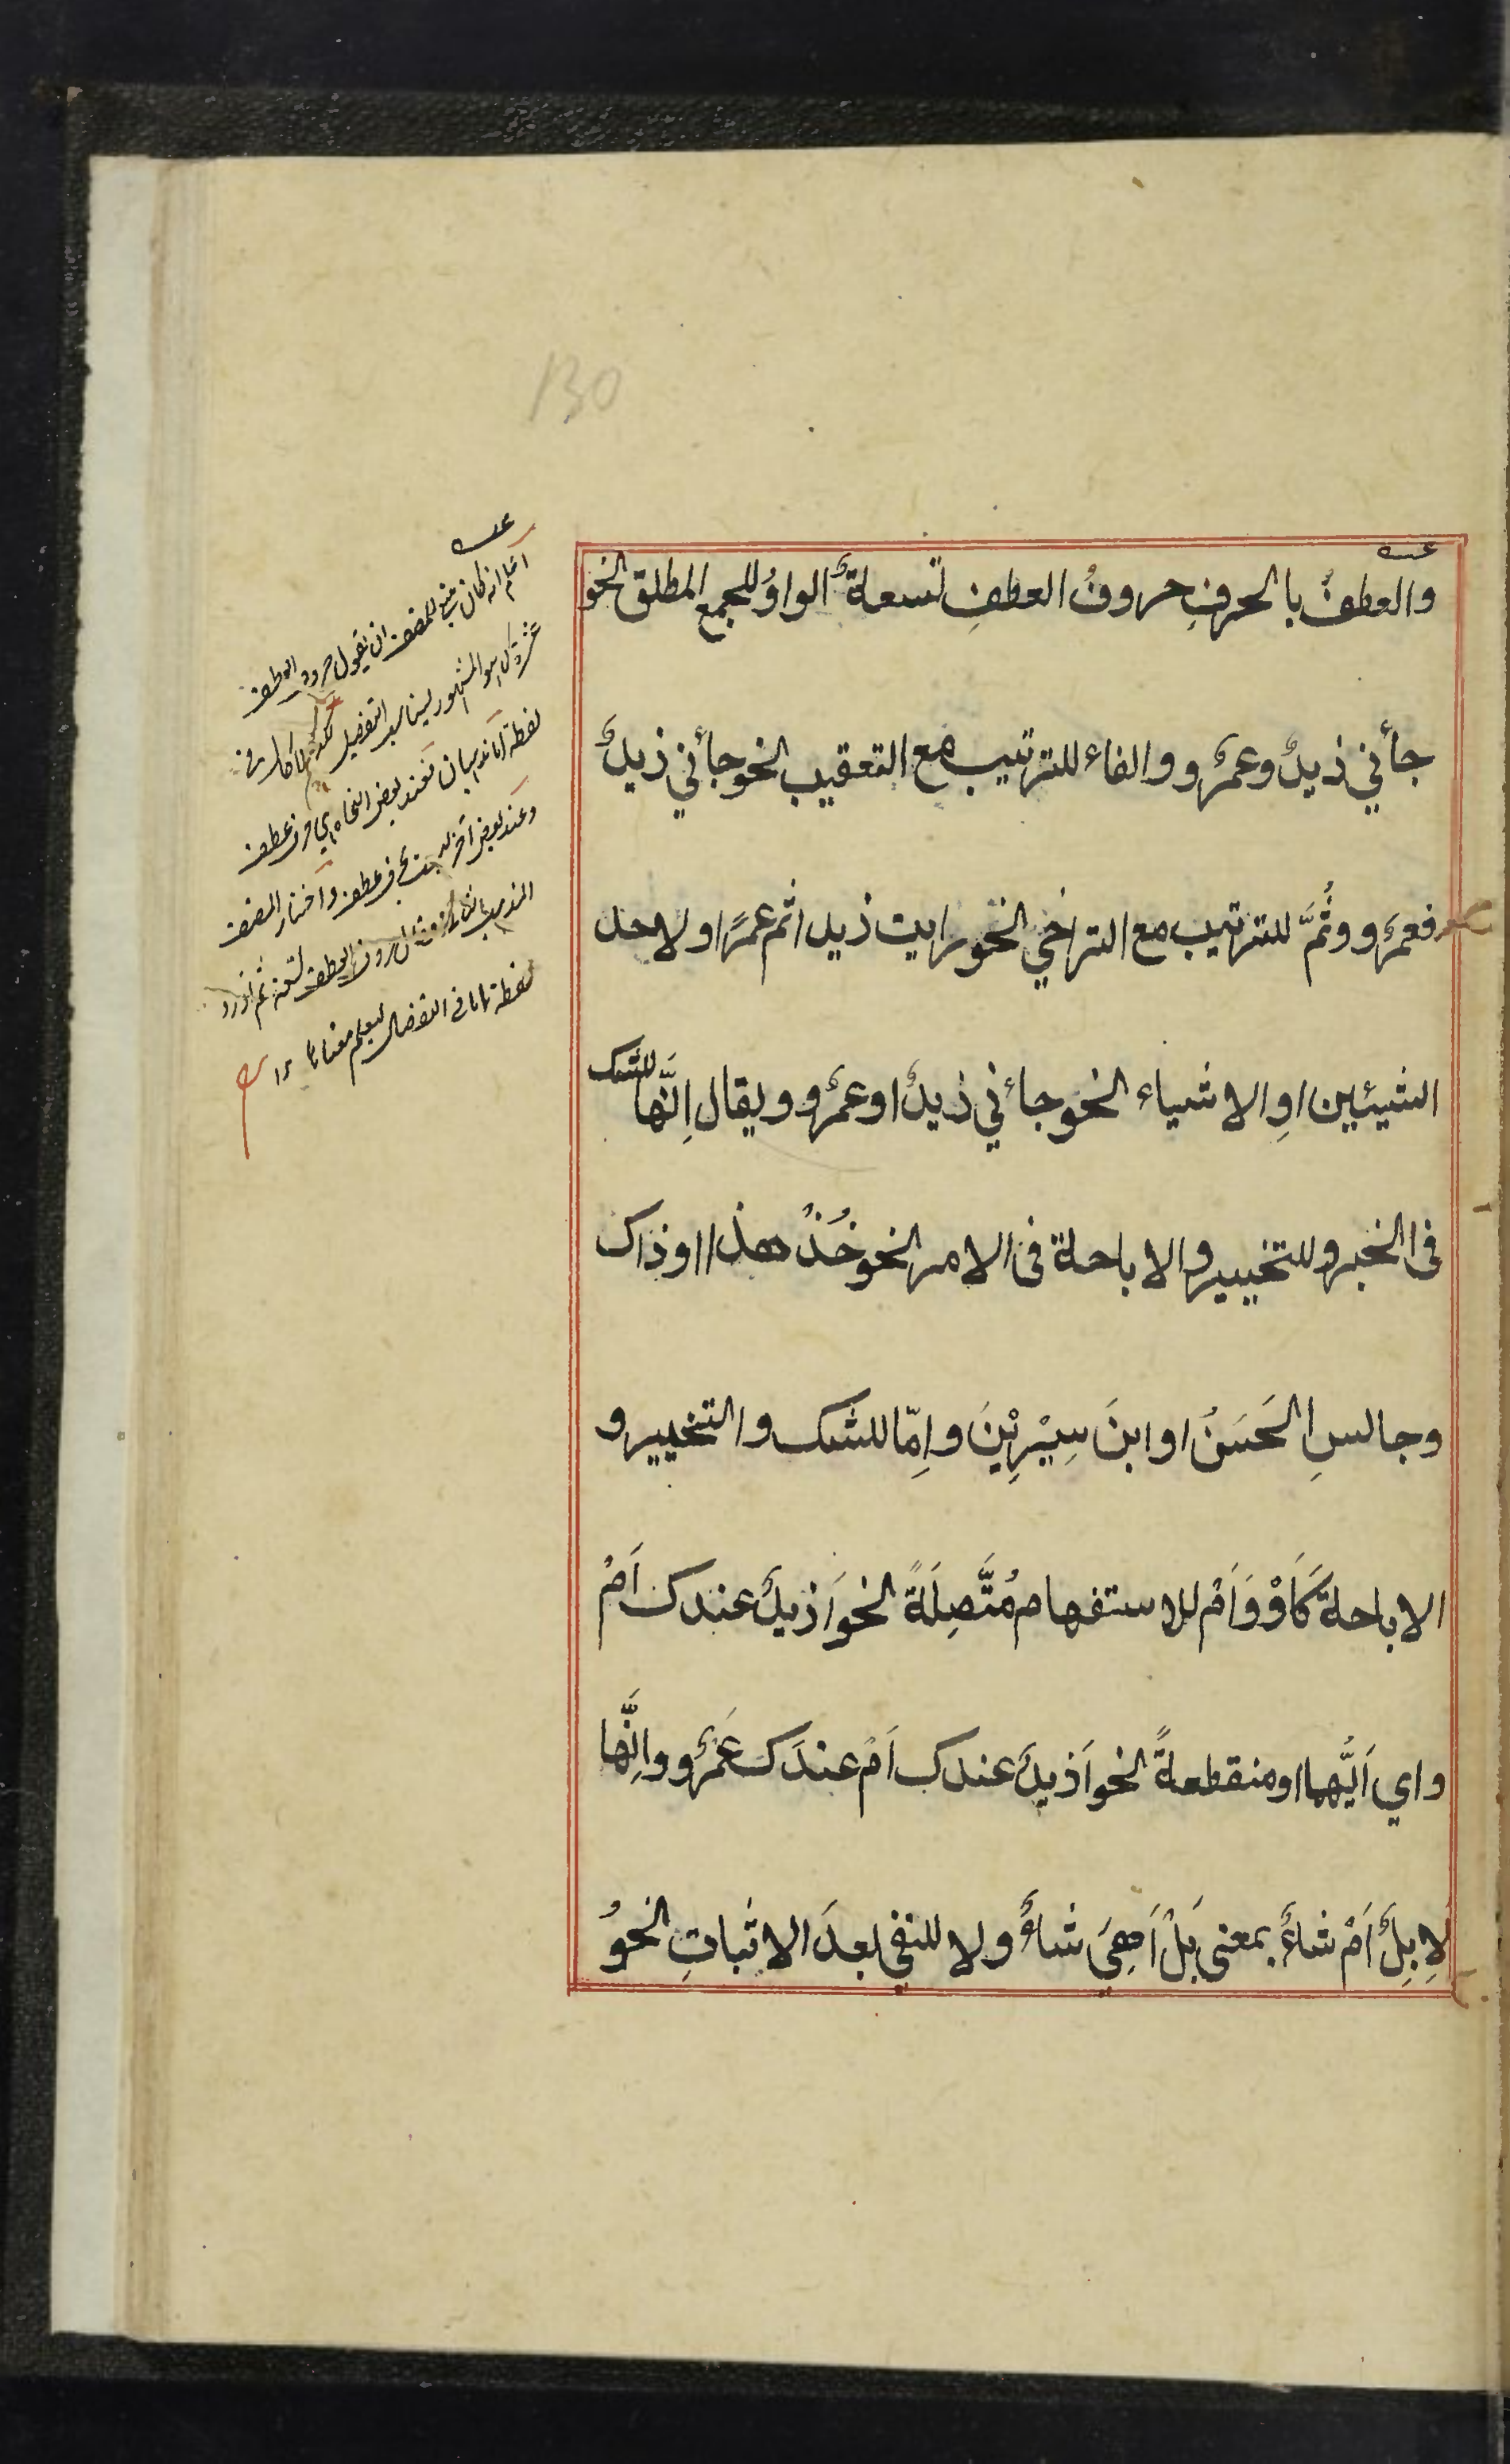 130
والعطفُ بالحرفِ حروفُ العطفِ تسعةٌ الواوُ للجمع المطلق نحو
جأني زيدٌ وعمرٌو والفاء للترتيب مع التعقيب نحو جأني زيدٌ
فعمرٌو وثُمَّ للترتيب مع التراخي نحو رايت زيدا ثم عمرًا او لاحد
الشيئين اوِ الاشياء نحو جاءني زيدٌ او عمرٌو ويقال اِنَّها للشك
فى الخبر وللتخيير والاباحة فى الامر نحو خُذْ هذا او ذاك
وجالسِ الحَسَنَ او ابنَ سِيْرِيْنَ واِمّا للشك والتخيير و
الاباحة كَاَوْ وَاَمْ للاستفهام مُتَّصِلَةً نحو اَزيدٌ عندك اَمْ
واي اَيُّهما او منقطعةً نحو اَزيدٌ عندك اَمْ عندَك عَمْرٌو واِنَّها
لَاِبِلٌ اَمْ شاءٌ بمعنى بَلْ اَهِيَ شاءٌ ولا للنفي بعدَ الاثباتِ نحوُ
اعلم انه كان ينبغي للمصنف ان يقول حروف العطف
عشرة كما هو المشهور ليناسب التفصيل
لفظة اما فعند بعض النحاة هي حرف عطف
وعند بعض آخر ليست بحرف عطف واختار المصنف
المذهب الثاني فقال حروف العطف تسعة ثم اورد
لفظة اما في التفصيل ليعلم معناها ١٢